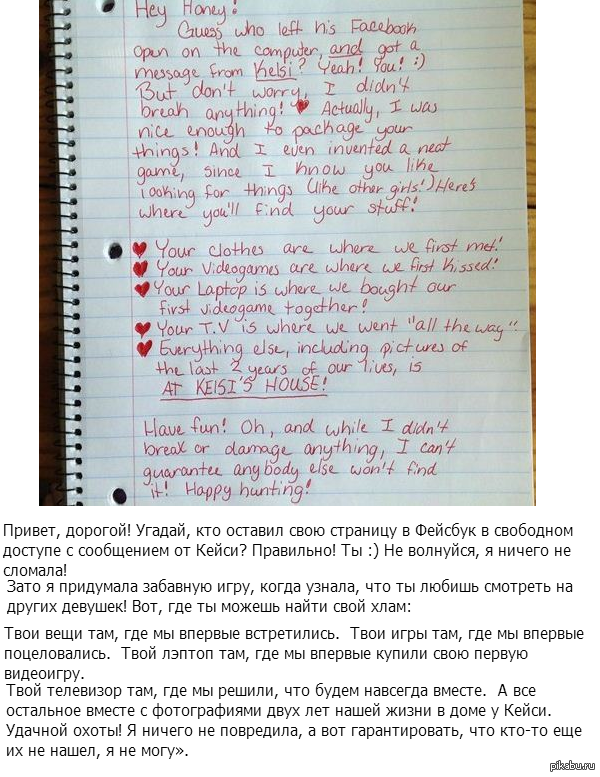 Hey Honey!
Guess who left his Facebook
open on the computer, and got a
message from Kelsi? Yeah! You! :)
But don't worry, I didn't
break anything! ♥ Actually, I was
nice enough to package your
things! And I even invented a neat
game, since I know you like
looking for things (like other girls!) Here's
where you'll find your stuff!
♥ Your clothes are where we first met!
♥ Your videogames are where we first kissed!
♥ Your Laptop is where we bought our
first videogame together!
♥ Your T.V is where we went "all the way".
♥ Everything else, including pictures of
the last 2 years of our lives, is
AT KELSI'S HOUSE!
Have fun! Oh, and while I didn't
break or damage anything, I can't
guarantee anybody else won't find
it! Happy hunting!
Привет, дорогой! Угадай, кто оставил свою страницу в Фейсбук в свободном
доступе с сообщением от Кейси? Правильно! Ты :) Не волнуйся, я ничего не
сломала!
Зато я придумала забавную игру, когда узнала, что ты любишь смотреть на
других девушек! Вот, где ты можешь найти свой хлам:
Твои вещи там, где мы впервые встретились. Твои игры там, где мы впервые
поцеловались. Твой лэптоп там, где мы впервые купили свою первую
видеоигру.
Твой телевизор там, где мы решили, что будем навсегда вместе. А все
остальное вместе с фотографиями двух лет нашей жизни в доме у Кейси.
Удачной охоты! Я ничего не повредила, а вот гарантировать, что кто-то еще
их не нашел, я не могу».
pikabu.ru